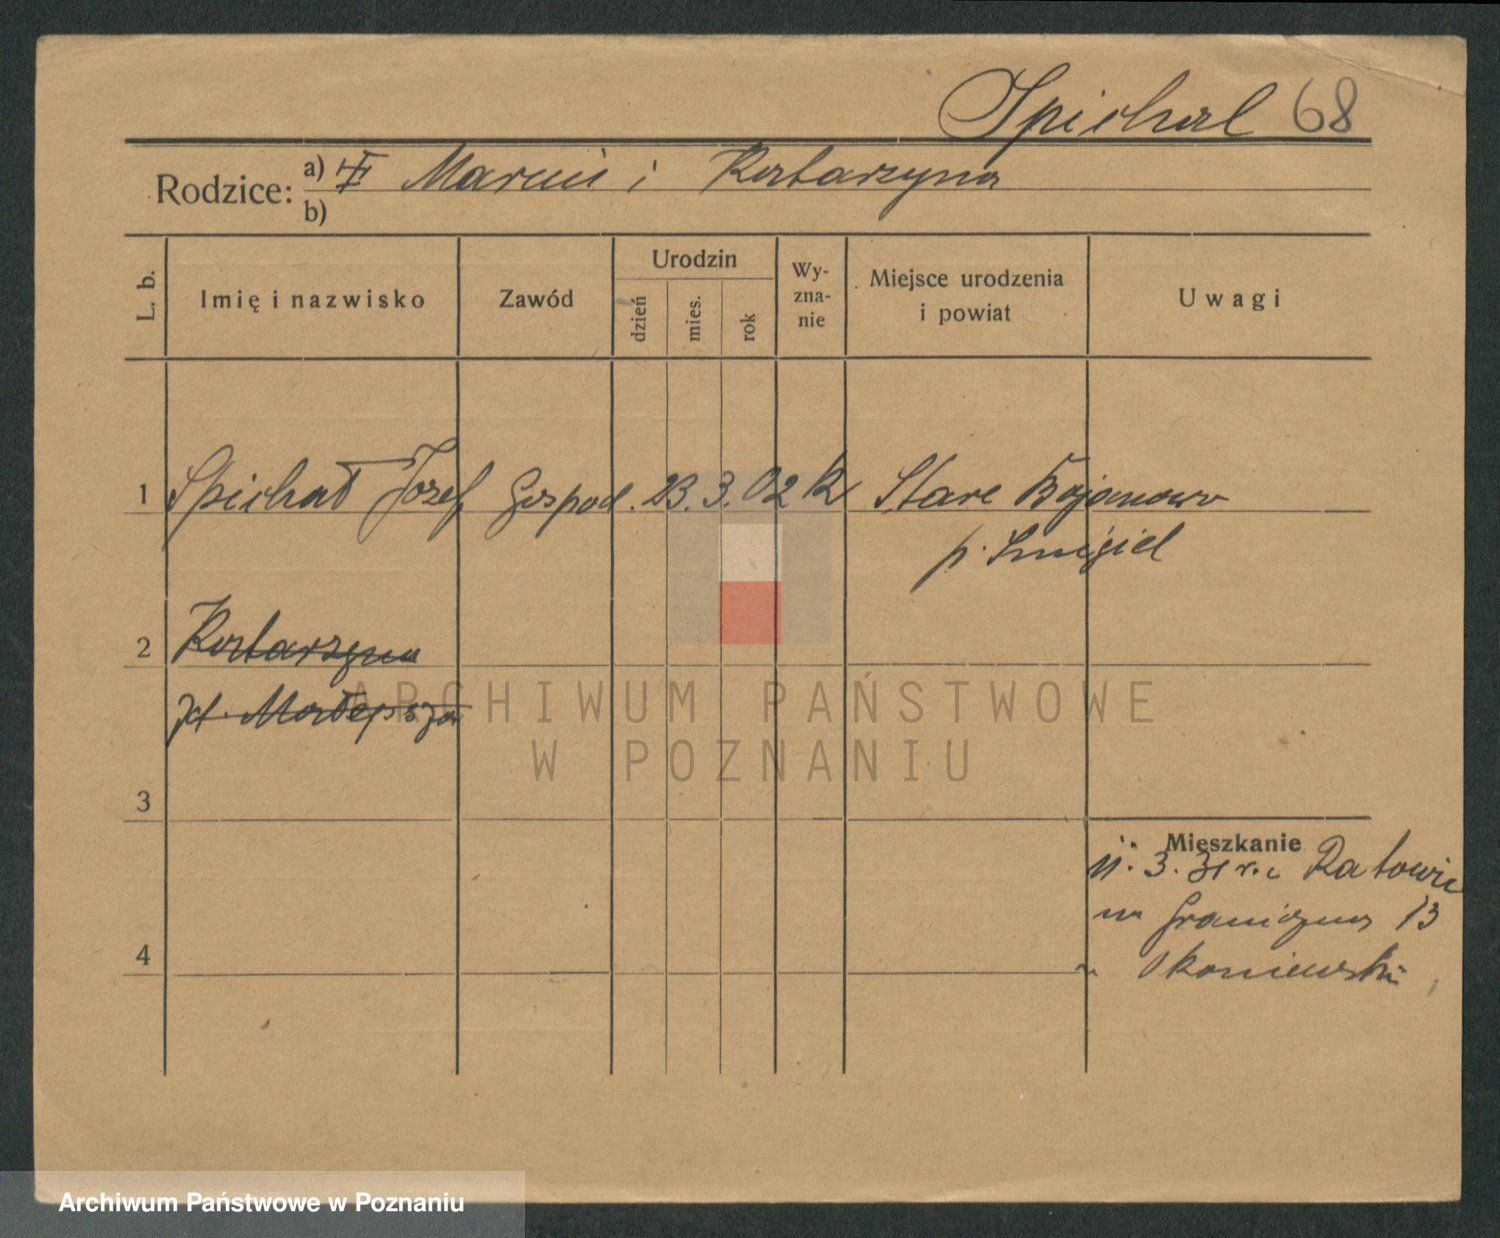 Spichał 68
Rodzice: a) Marcin i Katarzyna
b)
L. b.
Imię i nazwisko
Zawód
Urodzin
dzień
mies.
rok
Wy-
zna-
nie
Miejsce urodzenia
i powiat
Uwagi
1 Spichał Józef Gospod. 23. 3. 02 k Stare Bojanowo
p. Śmigiel
2 Katarzyna
zd. Małepsza
3
Mieszkanie
11. 3. 31 r.
na Graniczna 13
4
ARCHIWUM PAŃSTWOWE
W POZNANIU
Archiwum Państwowe w Poznaniu